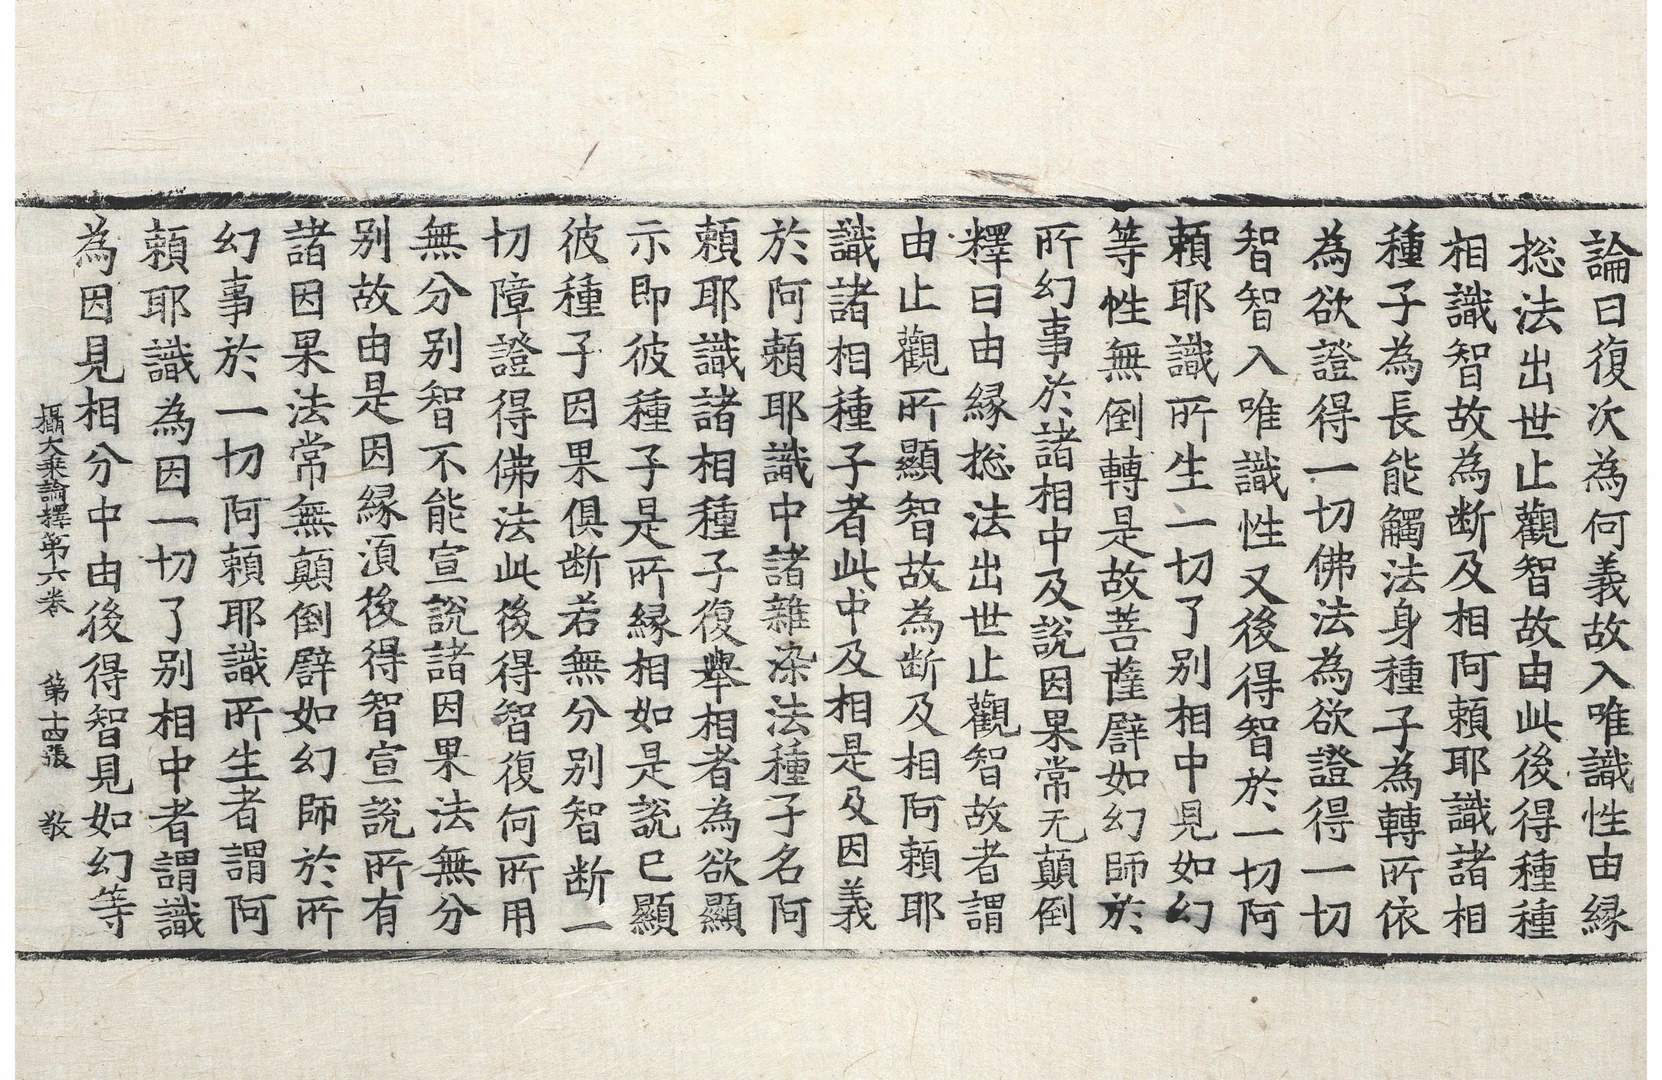 論曰復次為何義故入唯識性由縁
捴法出世止觀智故由此後得種種
相識智故為断及相阿頼耶識諸相
種子為長能觸法身種子為轉所依
為欲證得一切佛法為欲證得一切
智智入唯識性又後得智於一切阿
頼耶識所生一切了别相中見如幻
等性無倒轉是故菩薩譬如幻師於
所幻事於諸相中及說因果常无顛倒
釋曰由縁捴法出世止觀智故者謂
由止觀所顯智故為断及相阿頼耶
識諸相種子者此中及相是及因義
於阿頼耶識中諸雜染法種子名阿
頼耶識諸相種子復舉相者為欲顯
示即彼種子是所縁相如是說已顯
彼種子因果俱断若無分别智断一
切障證得佛法此後得智復何所用
無分别智不能宣說諸因果法無分
别故由是因縁湏後得智宣說所有
諸因果法常無顛倒譬如幻師於所
幻事於一切阿頼耶識所生者謂阿
頼耶識為因一切了别相中者謂識
為因見相分中由後得智見如幻等
攝大乗論釋第六卷　第十四張　敬